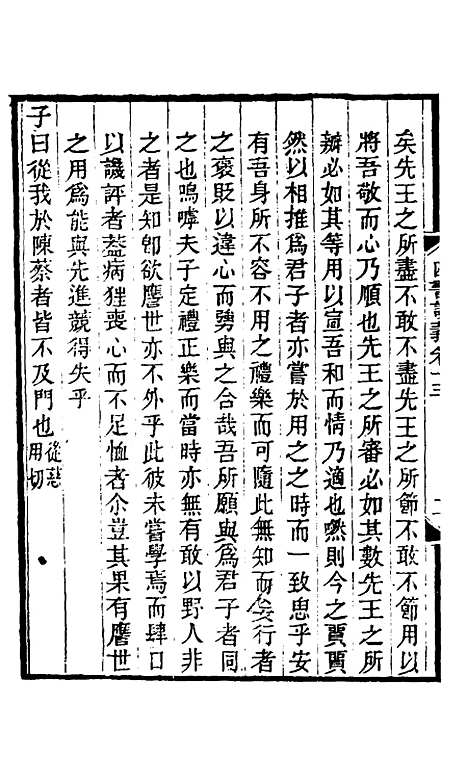 矣先王之所盡不敢不盡先王之所節不敢不節用以
將吾敬而心乃順也先王之所審必如其數先王之所
辨必如其等用以宣吾和而情乃適也然則今之賈賈
然以相推爲君子者亦嘗於用之之時而一致思乎安
有吾身所不容不用之禮樂而可隨此無知而妄行者
之褒貶以違心而勞與之合哉吾所願與爲君子者同
之也嗚嘑夫子定禮正樂而當時亦無有敢以野人非
之者是知卽欲譍世亦不外乎此彼未嘗學焉而肆口
以譏評者葢病狂喪心而不足恤者尒豈其果有譍世
之用爲能與先進競得失乎
子曰從我於陳蔡者皆不及門也從慈用切
四書訓義卷十三